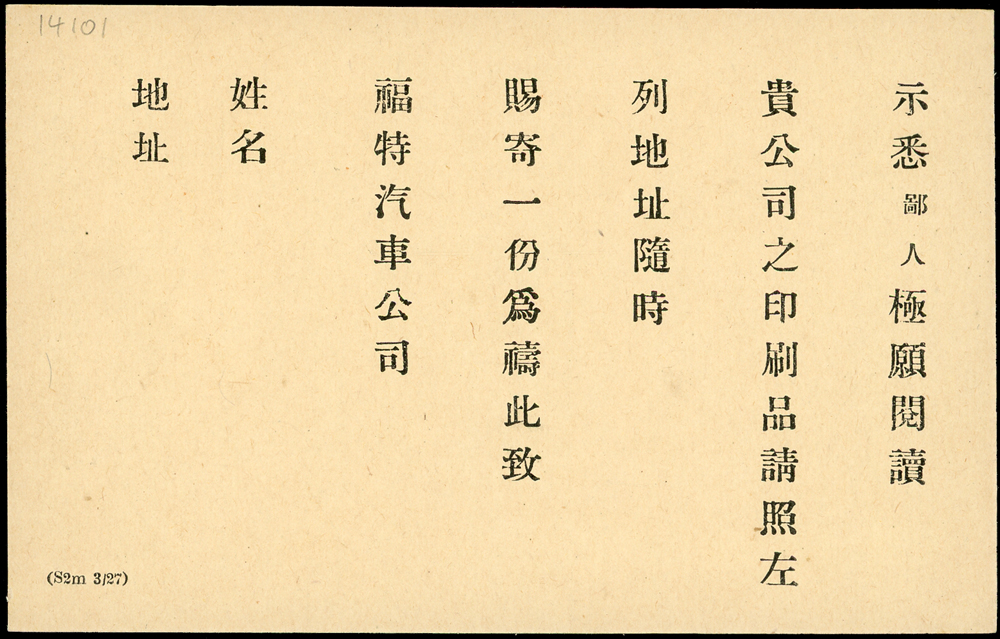 14101
示悉鄙人極願閱讀
貴公司之印刷品請照左
列地址隨時
賜寄一份爲禱此致
福特汽車公司
姓名
地址
(S2m 3/27)